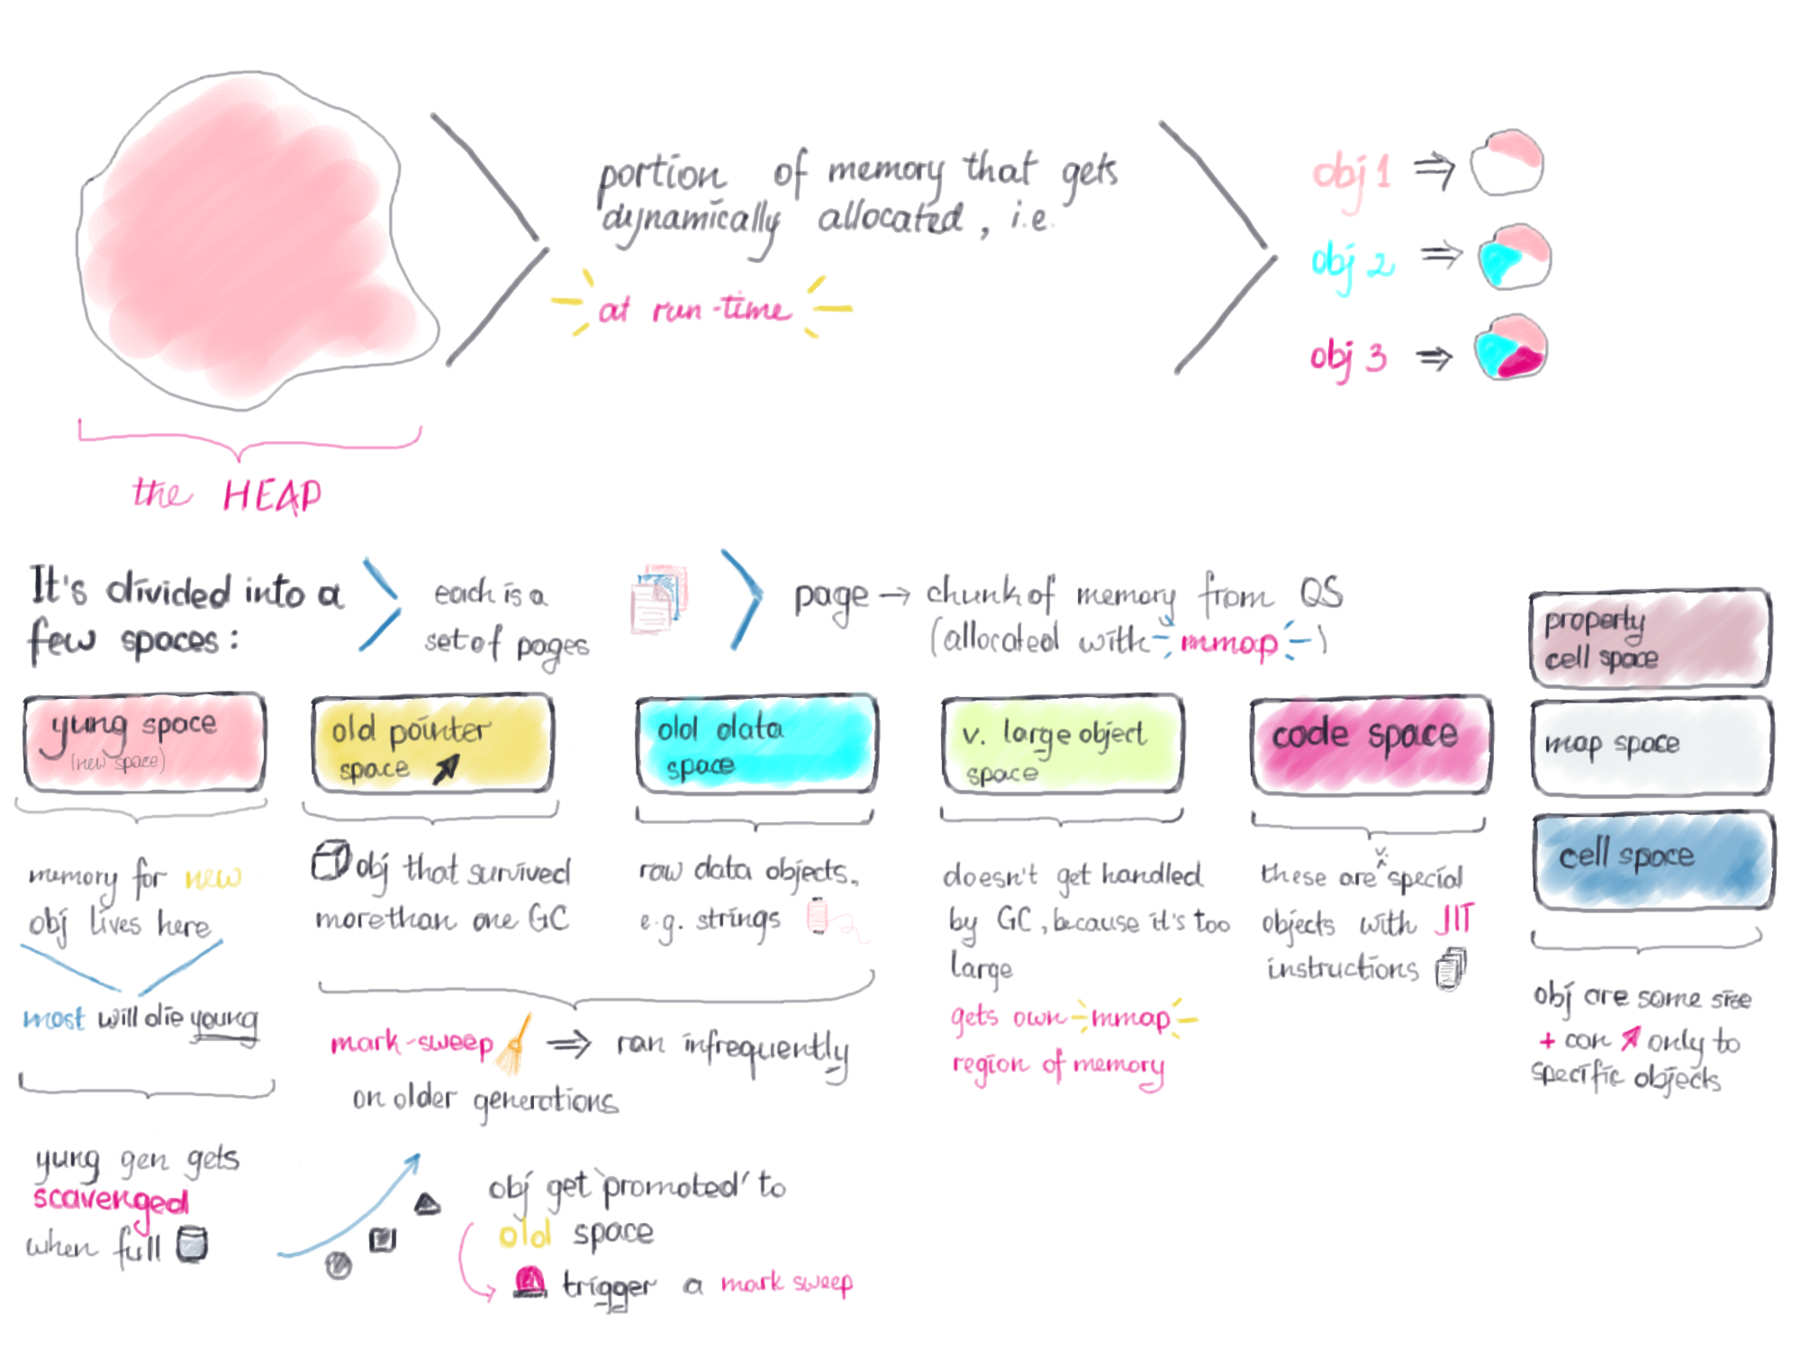 portion of memory that gets
dynamically allocated, i.e.
at run-time
obj 1 ⇒
obj 2 ⇒
obj 3 ⇒
the HEAP
It's divided into a
few spaces:
each is a
set of pages
page → chunk of memory from OS
(allocated with mmap)
yung space
(new space)
memory for new
obj lives here
most will die young
yung gen gets
scavenged
when full
old pointer
space
obj that survived
more than one GC
old data
space
raw data objects.
e.g. strings
mark-sweep ⇒ ran infrequently
on older generations
obj get 'promoted' to
old space
trigger a mark sweep
v. large object
space
doesn't get handled
by GC, because it's too
large
gets own mmap
region of memory
code space
these are v. special
objects with JIT
instructions
property
cell space
map space
cell space
obj are same size
+ can only to
specific objects